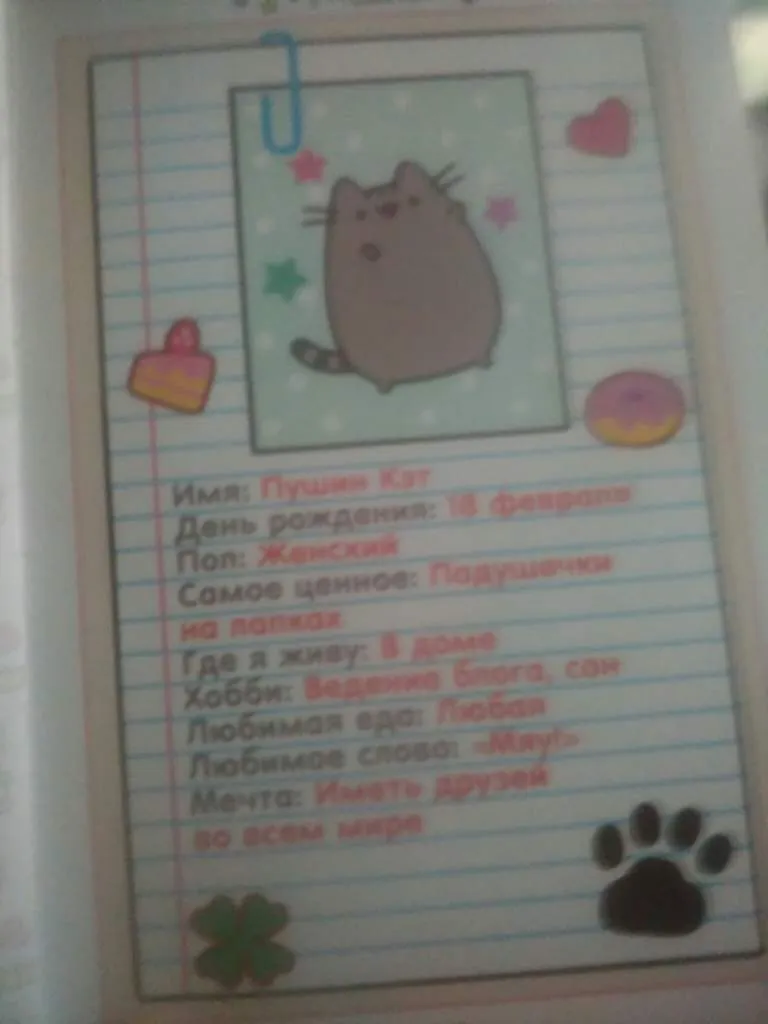 Имя: Пушин Кэт
День рождения: 18 февраля
Пол: Женский
Самое ценное: Подушечки
на лапках
Где я живу: В доме
Хобби: Ведение блога, сон
Любимая еда: Любая
Любимое слово: «Мяу!»
Мечта: Иметь друзей
во всем мире